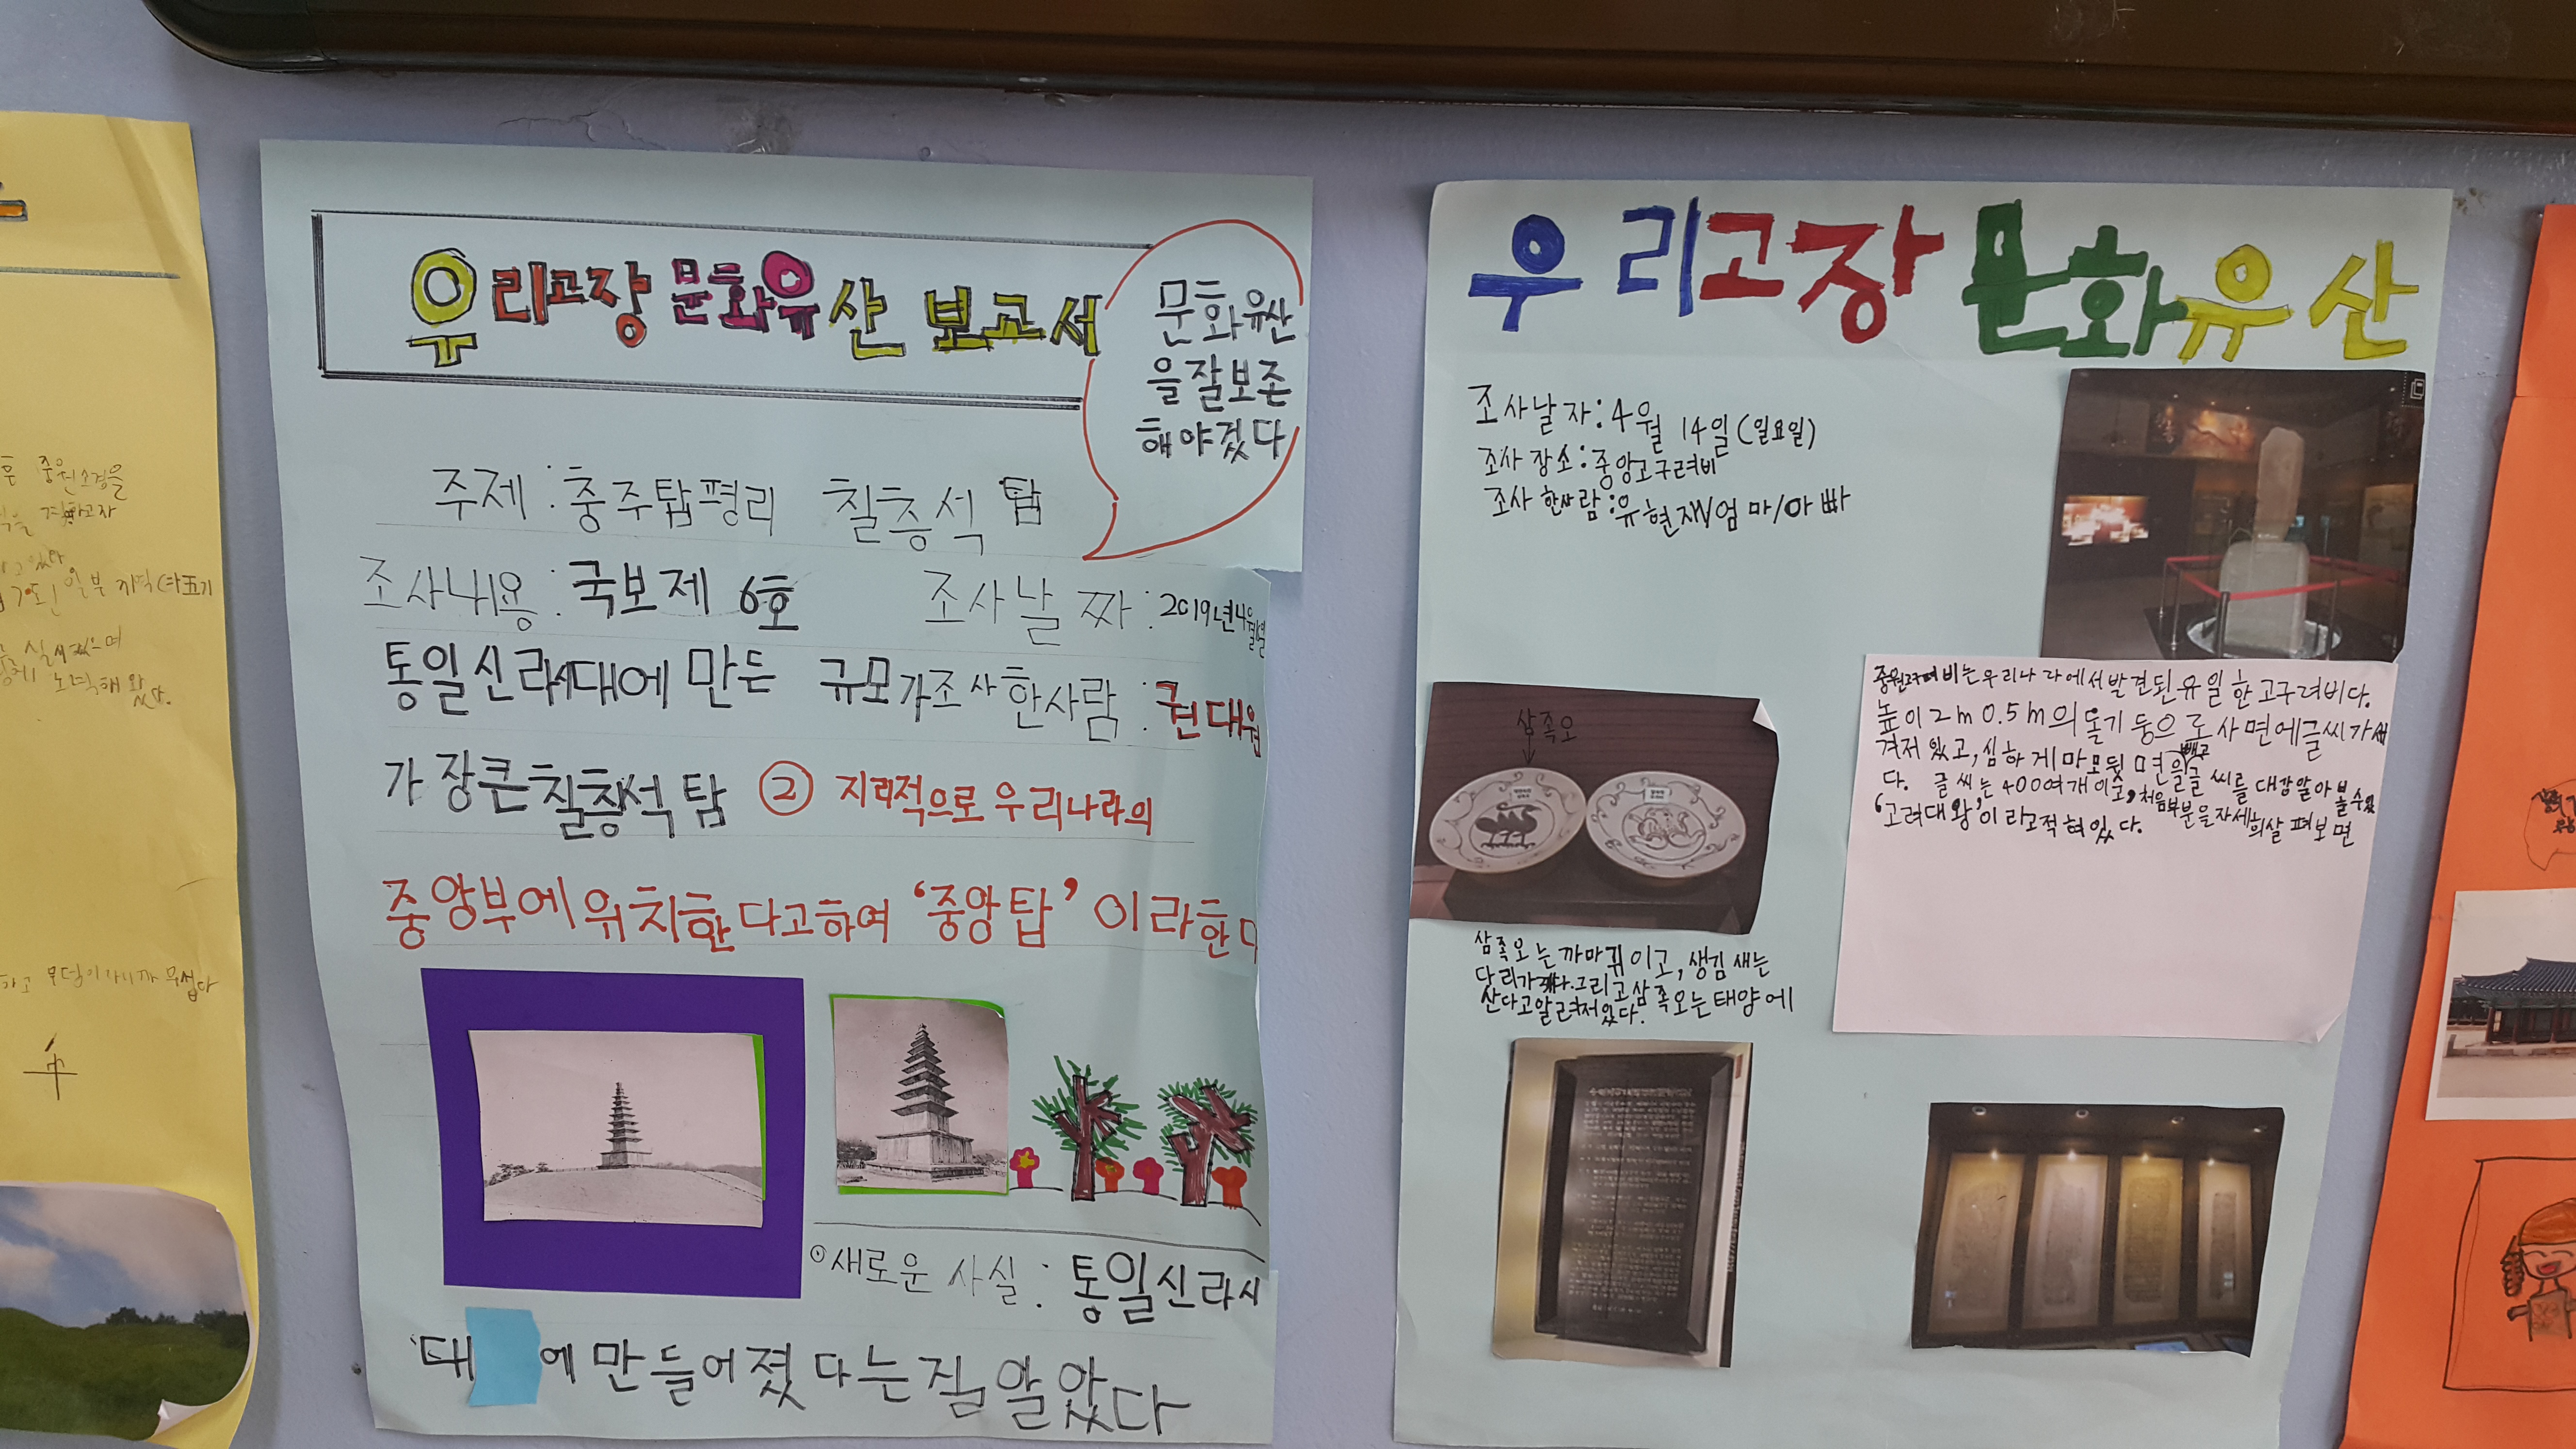 우리고장 문화유산 보고서
문화유산
을잘보존
해야겠다
주제 : 충주탑평리 칠층석 탑
조사내용 : 국보제 6호
조사날짜 : 2019년4월
통일신라시대에 만든 규모가
조사한사람 : 권대원
가장큰칠층석탑 ② 지리적으로우리나라의
중앙부에위치한다고하여 ‘중앙탑’ 이라한다
⊙새로운 사실 : 통일신라시
대 에만들어졌다는걸알았다
우리고장 문화유산
조사날자:4월 14일(일요일)
조사장소:중앙고구려비
조사한사람:유현재/엄마/아빠
삼족오
중원고구려비는우리나라에서발견된유일한고구려비다.
높이2m 0.5m의돌기둥으로사면에글씨가새
겨저있고,심하게마모됬
다. 글씨는400여개이고,처음부분을자세희살펴보면
‘고려대왕’이라고적혀있다.
삼족오는까마귀이고,생김새는
다리가 그리고삼족오는태양에
산다고알려저있다.
중원소경을
일부 지역
노력해 왔다.
무덤이나니까 무섭다